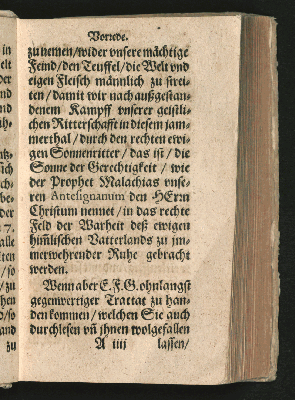 Vorrede.
zu nemen/wider vnsere mächtige
Feind/den Teuffel/die Welt vnd
eigen Fleisch männlich zu strei-
ten/damit wir nach außgestan-
denem Kampff vnserer geistli-
chen Ritterschafft in diesem jam-
merthal/durch den rechten ewi-
gen Sonnenritter/das ist/die
Sonne der Gerechtigkeit/wie
der Prophet Malachias vnse-
ren Antesignanum den HErrn
Christum nennet/in das rechte
Feld der Warheit deß ewigen
him̃lischen Vatterlands zu jm-
merwehrender Ruhe gebracht
werden.
Wenn aber E.F.G. ohnlangst
gegenwertiger Tractat zu han-
den kommen/welchen Sie auch
durchlesen vñ jhnen wolgefallen
A iiij lassen/